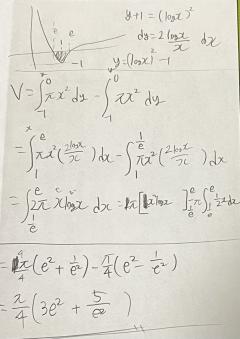 y+1 = (logx)²
dy = 2 logx/x dx
y = (logx)² -1
1/e 1 e
-1
V = ∫_{-1}^{0} πx² dy - ∫_{-1}^{0} πx² dy
= ∫_{1}^{e} πx² (2logx/x) dx - ∫_{1}^{1/e} πx² (2logx/x) dx
= ∫_{1/e}^{e} 2π x logx dx = π[x² logx]_{1/e}^{e} - π∫_{1/e}^{e} x dx
= π(e² + 1/e²) - π/4 (e² - 1/e²)
= π/4 (3e² + 5/e²)